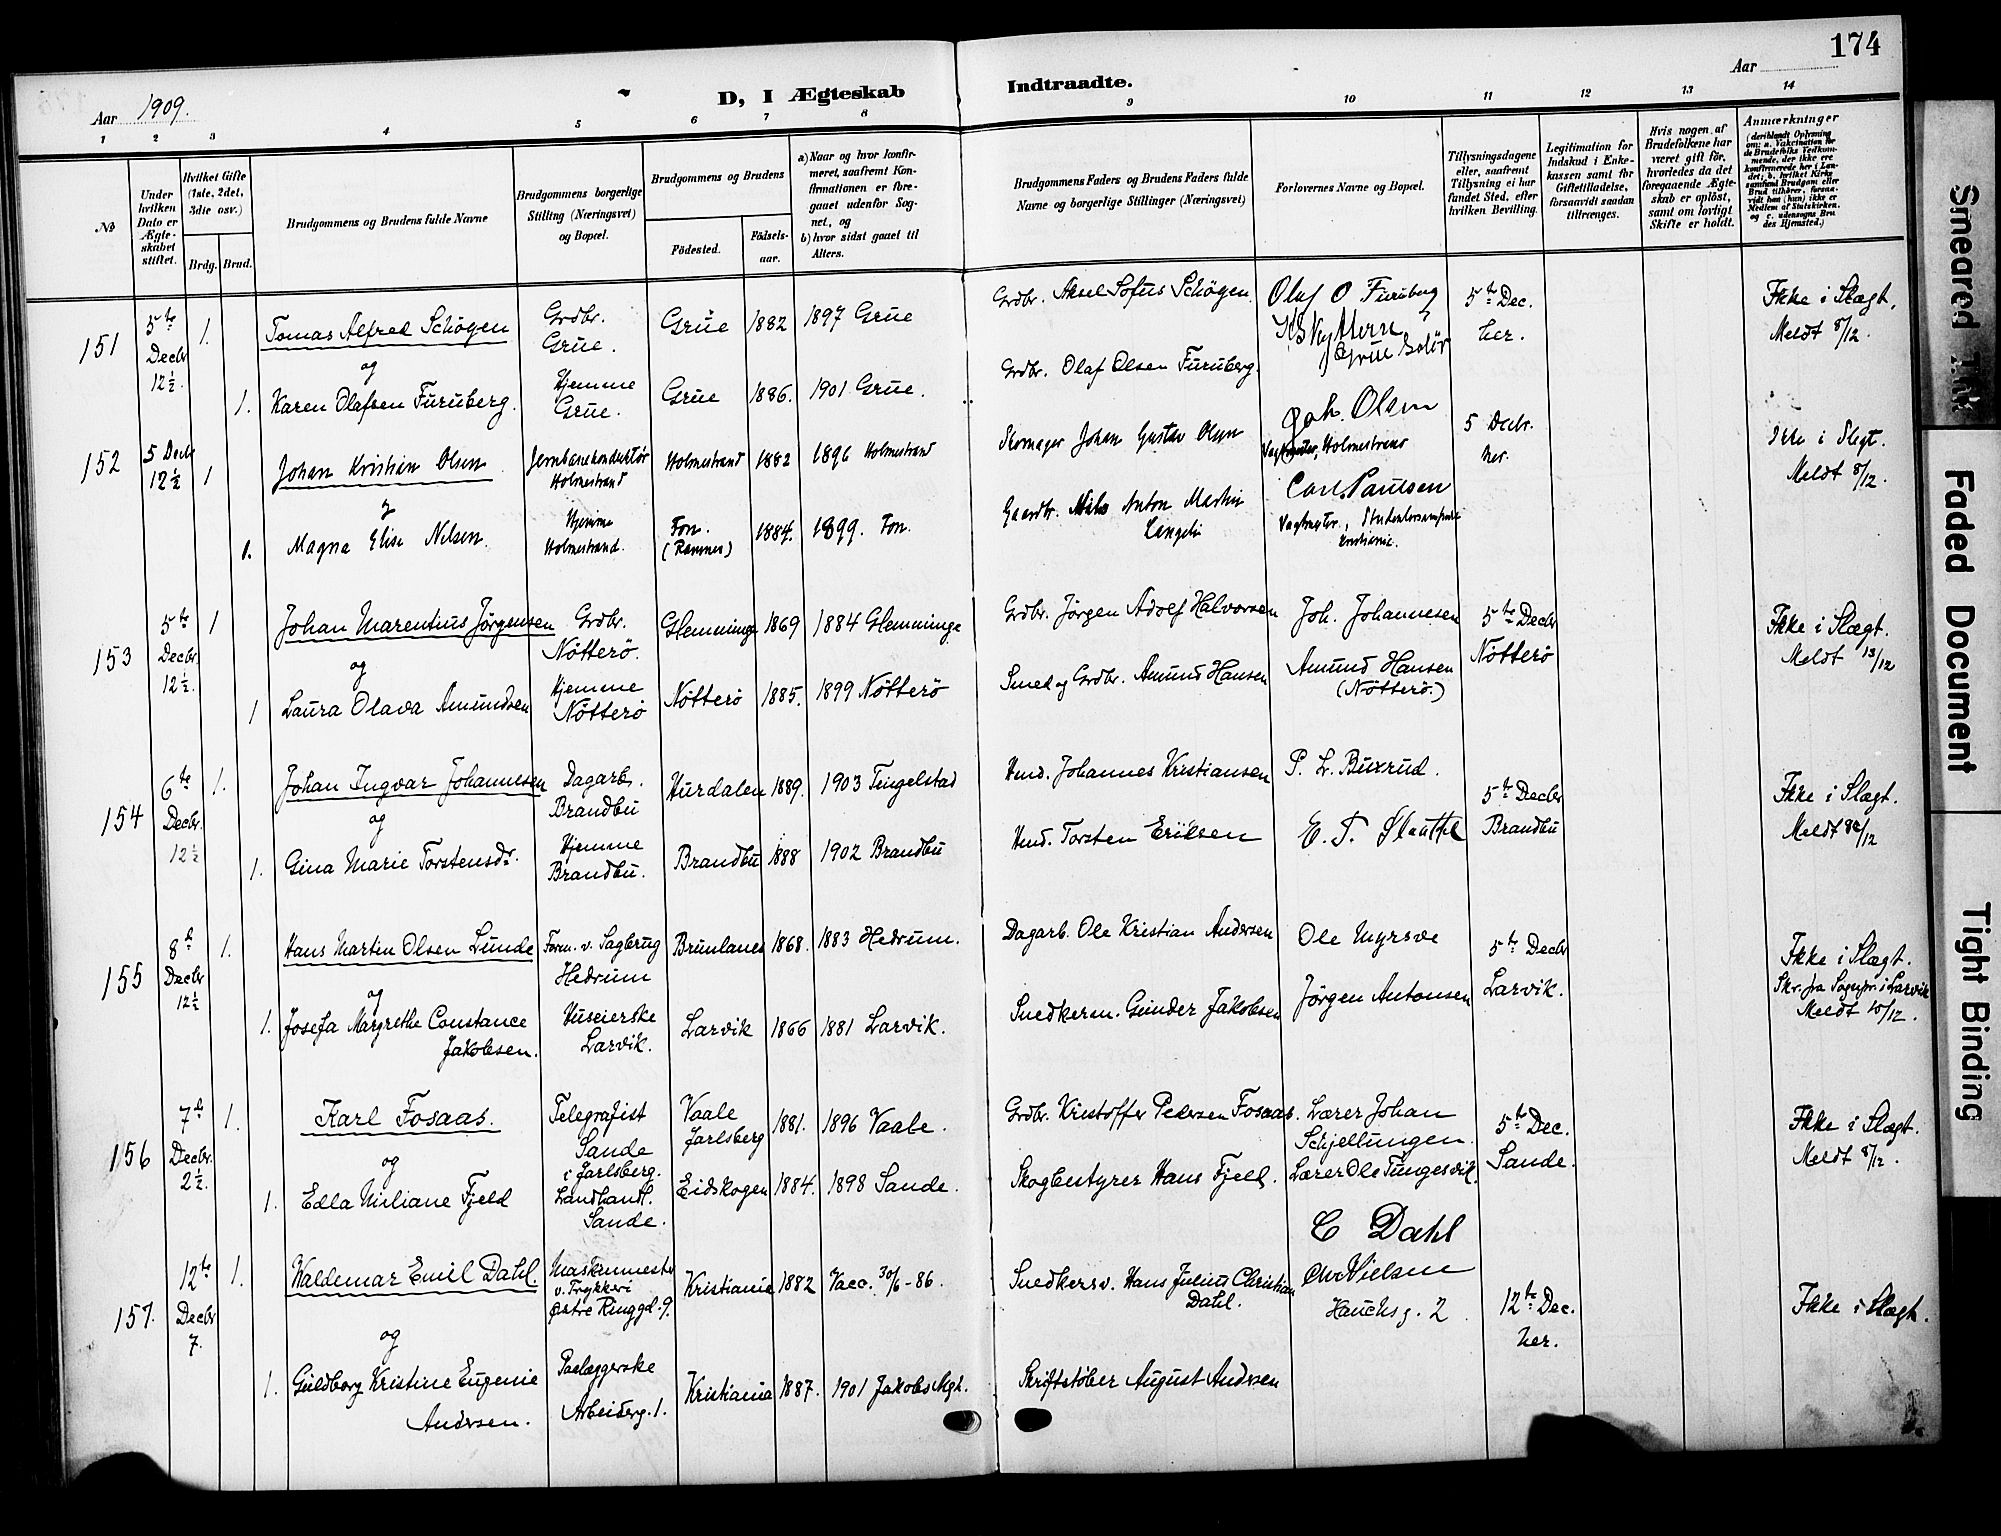 174
Aar 1909.
D, I Ægteskab Indtraadte.
Aar
1 2 3 4 5 6 7 8 9 10 11 12 13 14
№
Under hvilken Dato er Ægteskabet stiftet.
Hvilket Gifte (1ste, 2det, 3die osv.)
Brdg. Brud.
Brudgommens og Brudens fulde Navne
Brudgommens borgerlige Stilling (Næringsvei) og Bopæl.
Brudgommens og Brudens
Fødested. Fødselsaar.
a) Naar og hvor konfirmeret, saafremt Konfirmationen er foregaaet udenfor Sognet, og
b) hvor sidst gaaet til Alters.
Brudgommens Faders og Brudens Faders fulde Navne og borgerlige Stillinger (Næringsvei)
Forlovernes Navne og Bopæl.
Tillysningsdagene eller, saafremt Tillysning ei har fundet Sted, efter hvilken Bevilling.
Legitimation for Indskud i Enkekassen samt for Giftetilladelse, forsaavidt saadan tiltrænges.
Hvis nogen af Brudefolkene har været gift før, hvorledes da det foregaaende Ægteskab er opløst, samt om lovligt Skifte er holdt.
Anmærkninger
151 5te Decbr 12½. 1. Tomas Alfred Schøgen Grdbr. Grue. Grue 1882 1897 Grue Grdbr. Aksel Sofus Schøgen Olaf O Furuberg 5te Dec. her. Ikke i Slægt, Meldt 8/12.
og
1. Karen Olafsen Furuberg. Hjemme Grue. Grue 1886. 1901 Grue. Grdbr. Olaf Olsen Furuberg. Grue Solør
152 5 Decbr 12½ 1 Johan Kristian Olsen Jernbanekonduktør Holmestrand Holmestrand 1882 1896 Holmestrand Skomager Johan Gustav Olsen Joh. Olsen Holmestrand 5 Decbr. her. Ikke i Slegt. Meldt 8/12.
og
1. Magna Elise Nilsen. Hjemme Holmestrand. Fon. (Ramnes) 1884. 1899. Fon. Gaardbr. Nils Anton Martin Carl Paulsen
153 5te Decbr. 12½. 1 Johan Marentius Jørgensen Grdbr. Nøtterø. Glemminge 1869 1884 Glemminge Grdbr. Jørgen Adolf Halvorsen Joh. Johannesen 5te Decbr Nøtterø Ikke i Slægt. Meldt 13/12
og
1 Laura Olava Amundsen Hjemme Nøtterø Nøtterø 1885. 1899 Nøtterø Smed og Grdbr. Amund Hansen Amund Hansen (Nøtterø.)
154 6te Decbr. 12½ 1. Johan Ingvar Johannesen Dagarb. Brandbu Hurdalen 1889. 1903 Tingelstad Hmd. Johannes Kristiansen P. L. Buxrud. 5te Decbr Brandbu Ikke i Slægt. Meldt
og
1. Gina Marie Torstensdr. Hjemme Brandbu. Brandbu 1888 1902 Brandbu Hmd. Torsten Eriksen E. T.
155 8d Decbr 12½ 1. Hans Martin Olsen Lunde Form. v. Sagbrug Hedrum Brunlanes 1868. 1883 Hedrum. Dagarb. Ole Kristian Andersen Ole Myrsve 5te Decbr Larvik. Ikke i Slægt. Skr. fra Sogepr. i Larvik Meldt 10/12.
og
1. Josefa Margrethe Constance Jakobsen. Huseierske Larvik. Larvik 1866 1881 Larvik. Snedkerm. Gunder Jakobsen Jørgen Antonsen
156 7d Decbr. 2½. 1. Karl Fosaas. Telegrafist Sande i Jarlsberg. Vaale Jarlsberg 1881. 1896 Vaale. Grdbr. Kristoffer Pedersen Fosaas. Lærer Johan Schjellungen. 5te Dec. Sande. Ikke i Slægt. Meldt 8/12.
og
1. Edla Miliane Fjeld Landhandl. Sande. Eidskogen 1884. 1898 Sande. Skogbestyrer Hans Fjeld. Lærer Ole Tungesvik.
157. 12te Decbr 7. 1. Waldemar Emil Dahl. Maskinmester v. Trykkeri Østre Ringgd. 9. Kristiania 1882 Vacc. 30/6-86. Snedkersv. Hans Julius Christian Dahl. C Dahl Nielsen Hauchsg. 2 12te Dec. her. Ikke i Slægt.
og
1. Guldborg Kristine Eugenie Andersen. Paalæggerske Arbeiderg. 1. Kristiania 1887. 1901 Jakobs Mgh. Skriftstøber August Andersen
Smeared Ink
Faded Document
Tight Binding